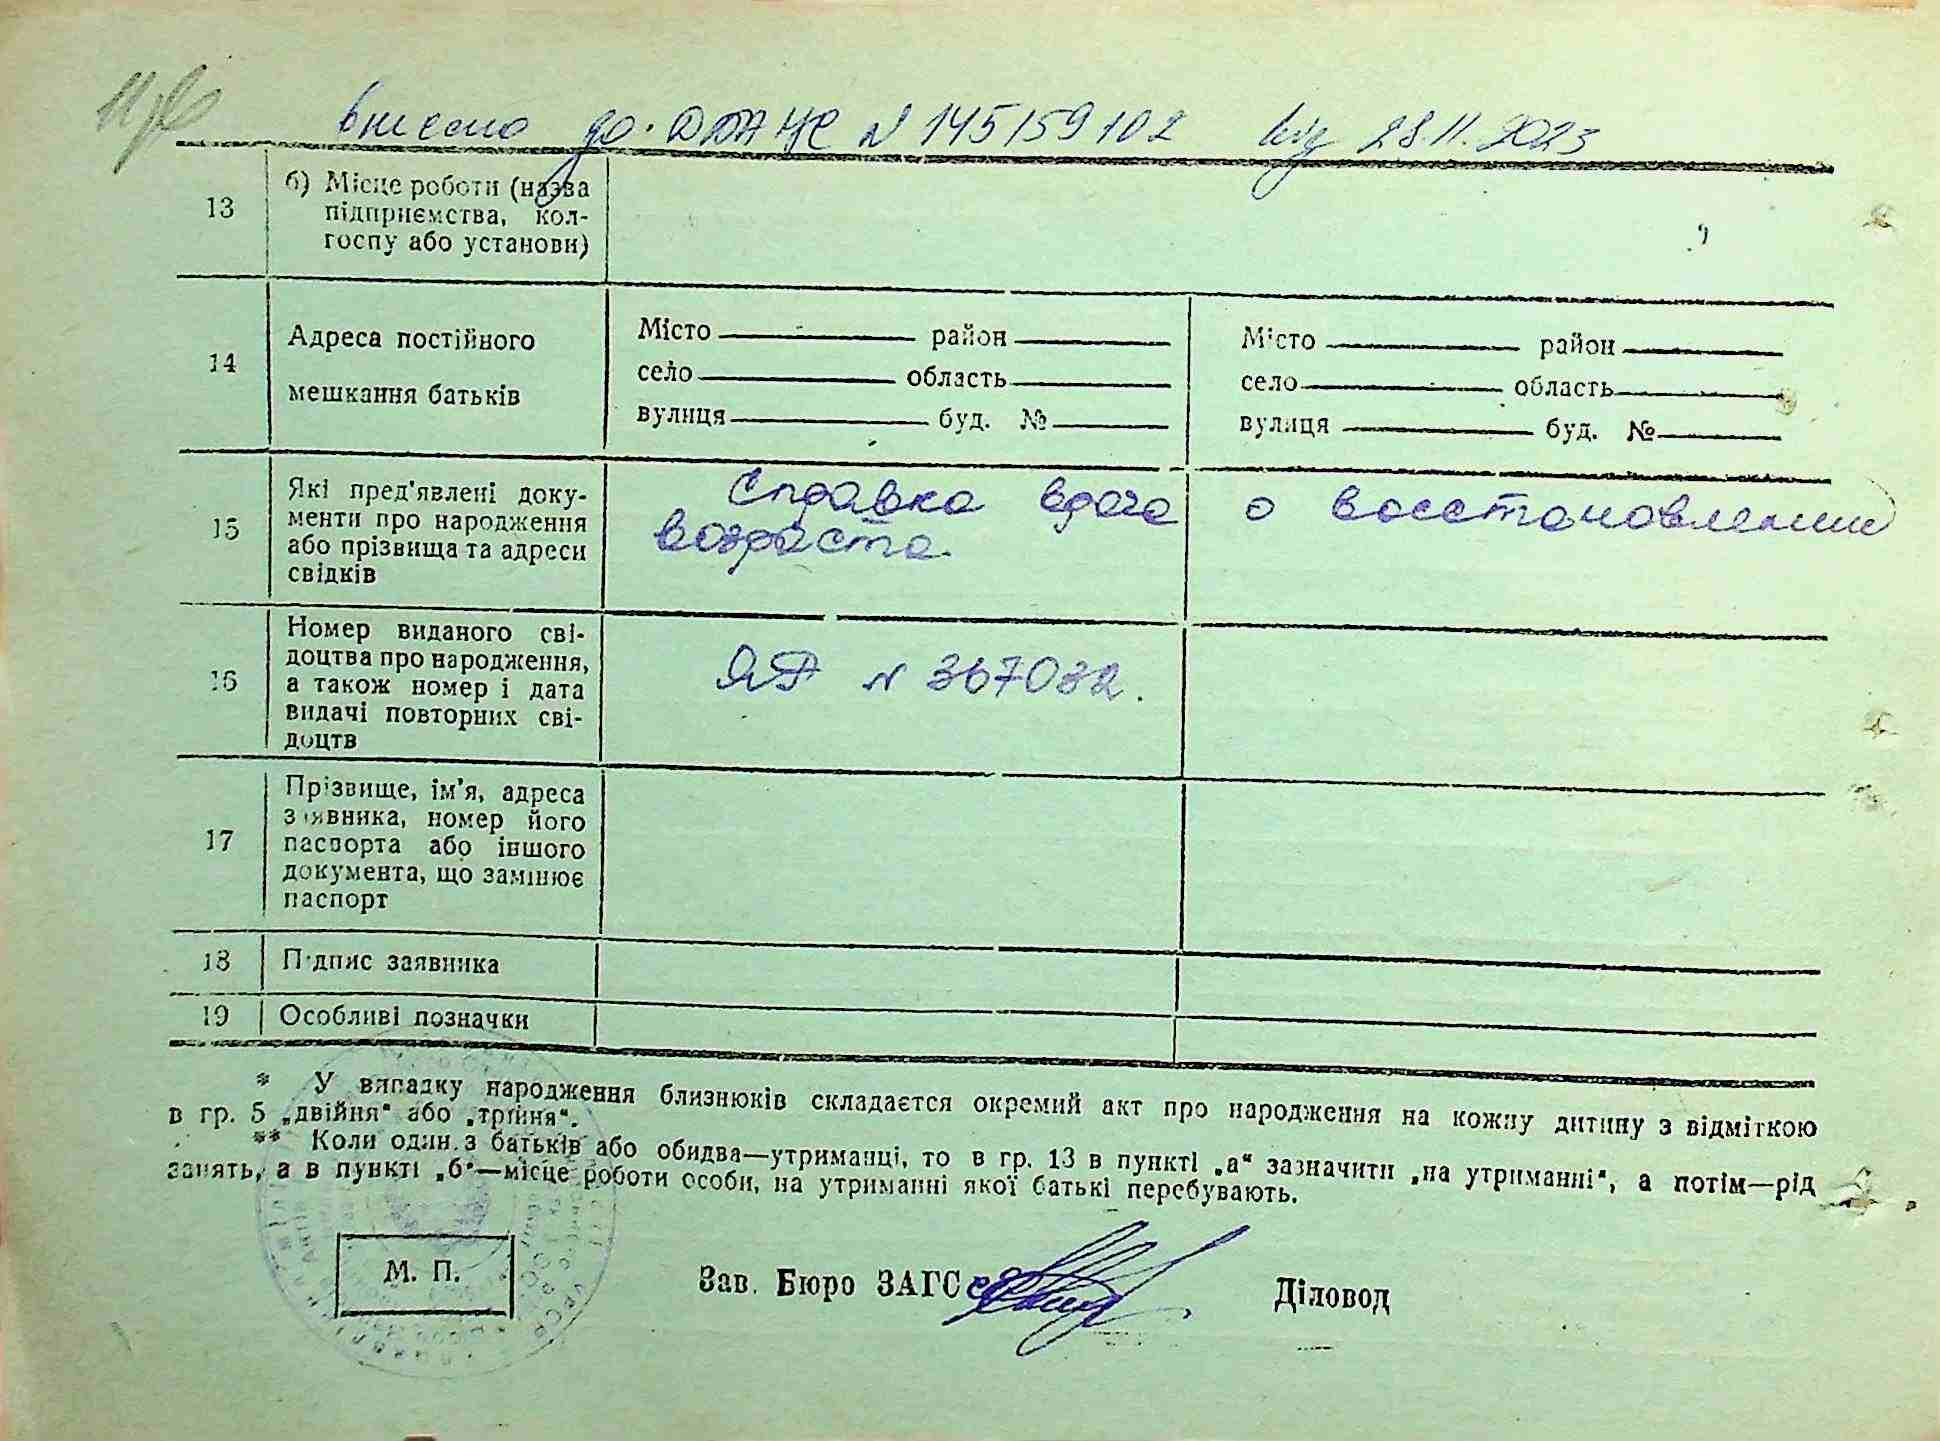 внесено до ДРАЦС N 145159102 від 28.11.2023
13
б) Місце роботи (назва
підприємства, кол-
госпу або установи)
14
Адреса постійного
мешкання батьків
Місто район
село область
вулиця буд. №
Місто район
село область
вулиця буд. №
15
Які пред'явлені доку-
менти про народження
або прізвища та адреси
свідків
Справка о восстановлении
возраста.
16
Номер виданого сві-
доцтва про народження,
а також номер і дата
видачі повторних сві-
доцтв
N 367032.
17
Прізвище, ім'я, адреса
заявника, номер його
паспорта або іншого
документа, що замінює
паспорт
18
Підпис заявника
19
Особливі позначки
* У випадку народження близнюків складається окремий акт про народження на кожну дитину з відміткою
в гр. 5 „двійня“ або „трійня“.
** Коли один з батьків або обидва—утриманці, то в гр. 13 в пункті „а“ зазначити „на утриманні“, а потім—рід
занять, а в пункті „б“—місце роботи особи, на утриманні якої батькі перебувають.
М. П.
Зав. Бюро ЗАГС
Діловод